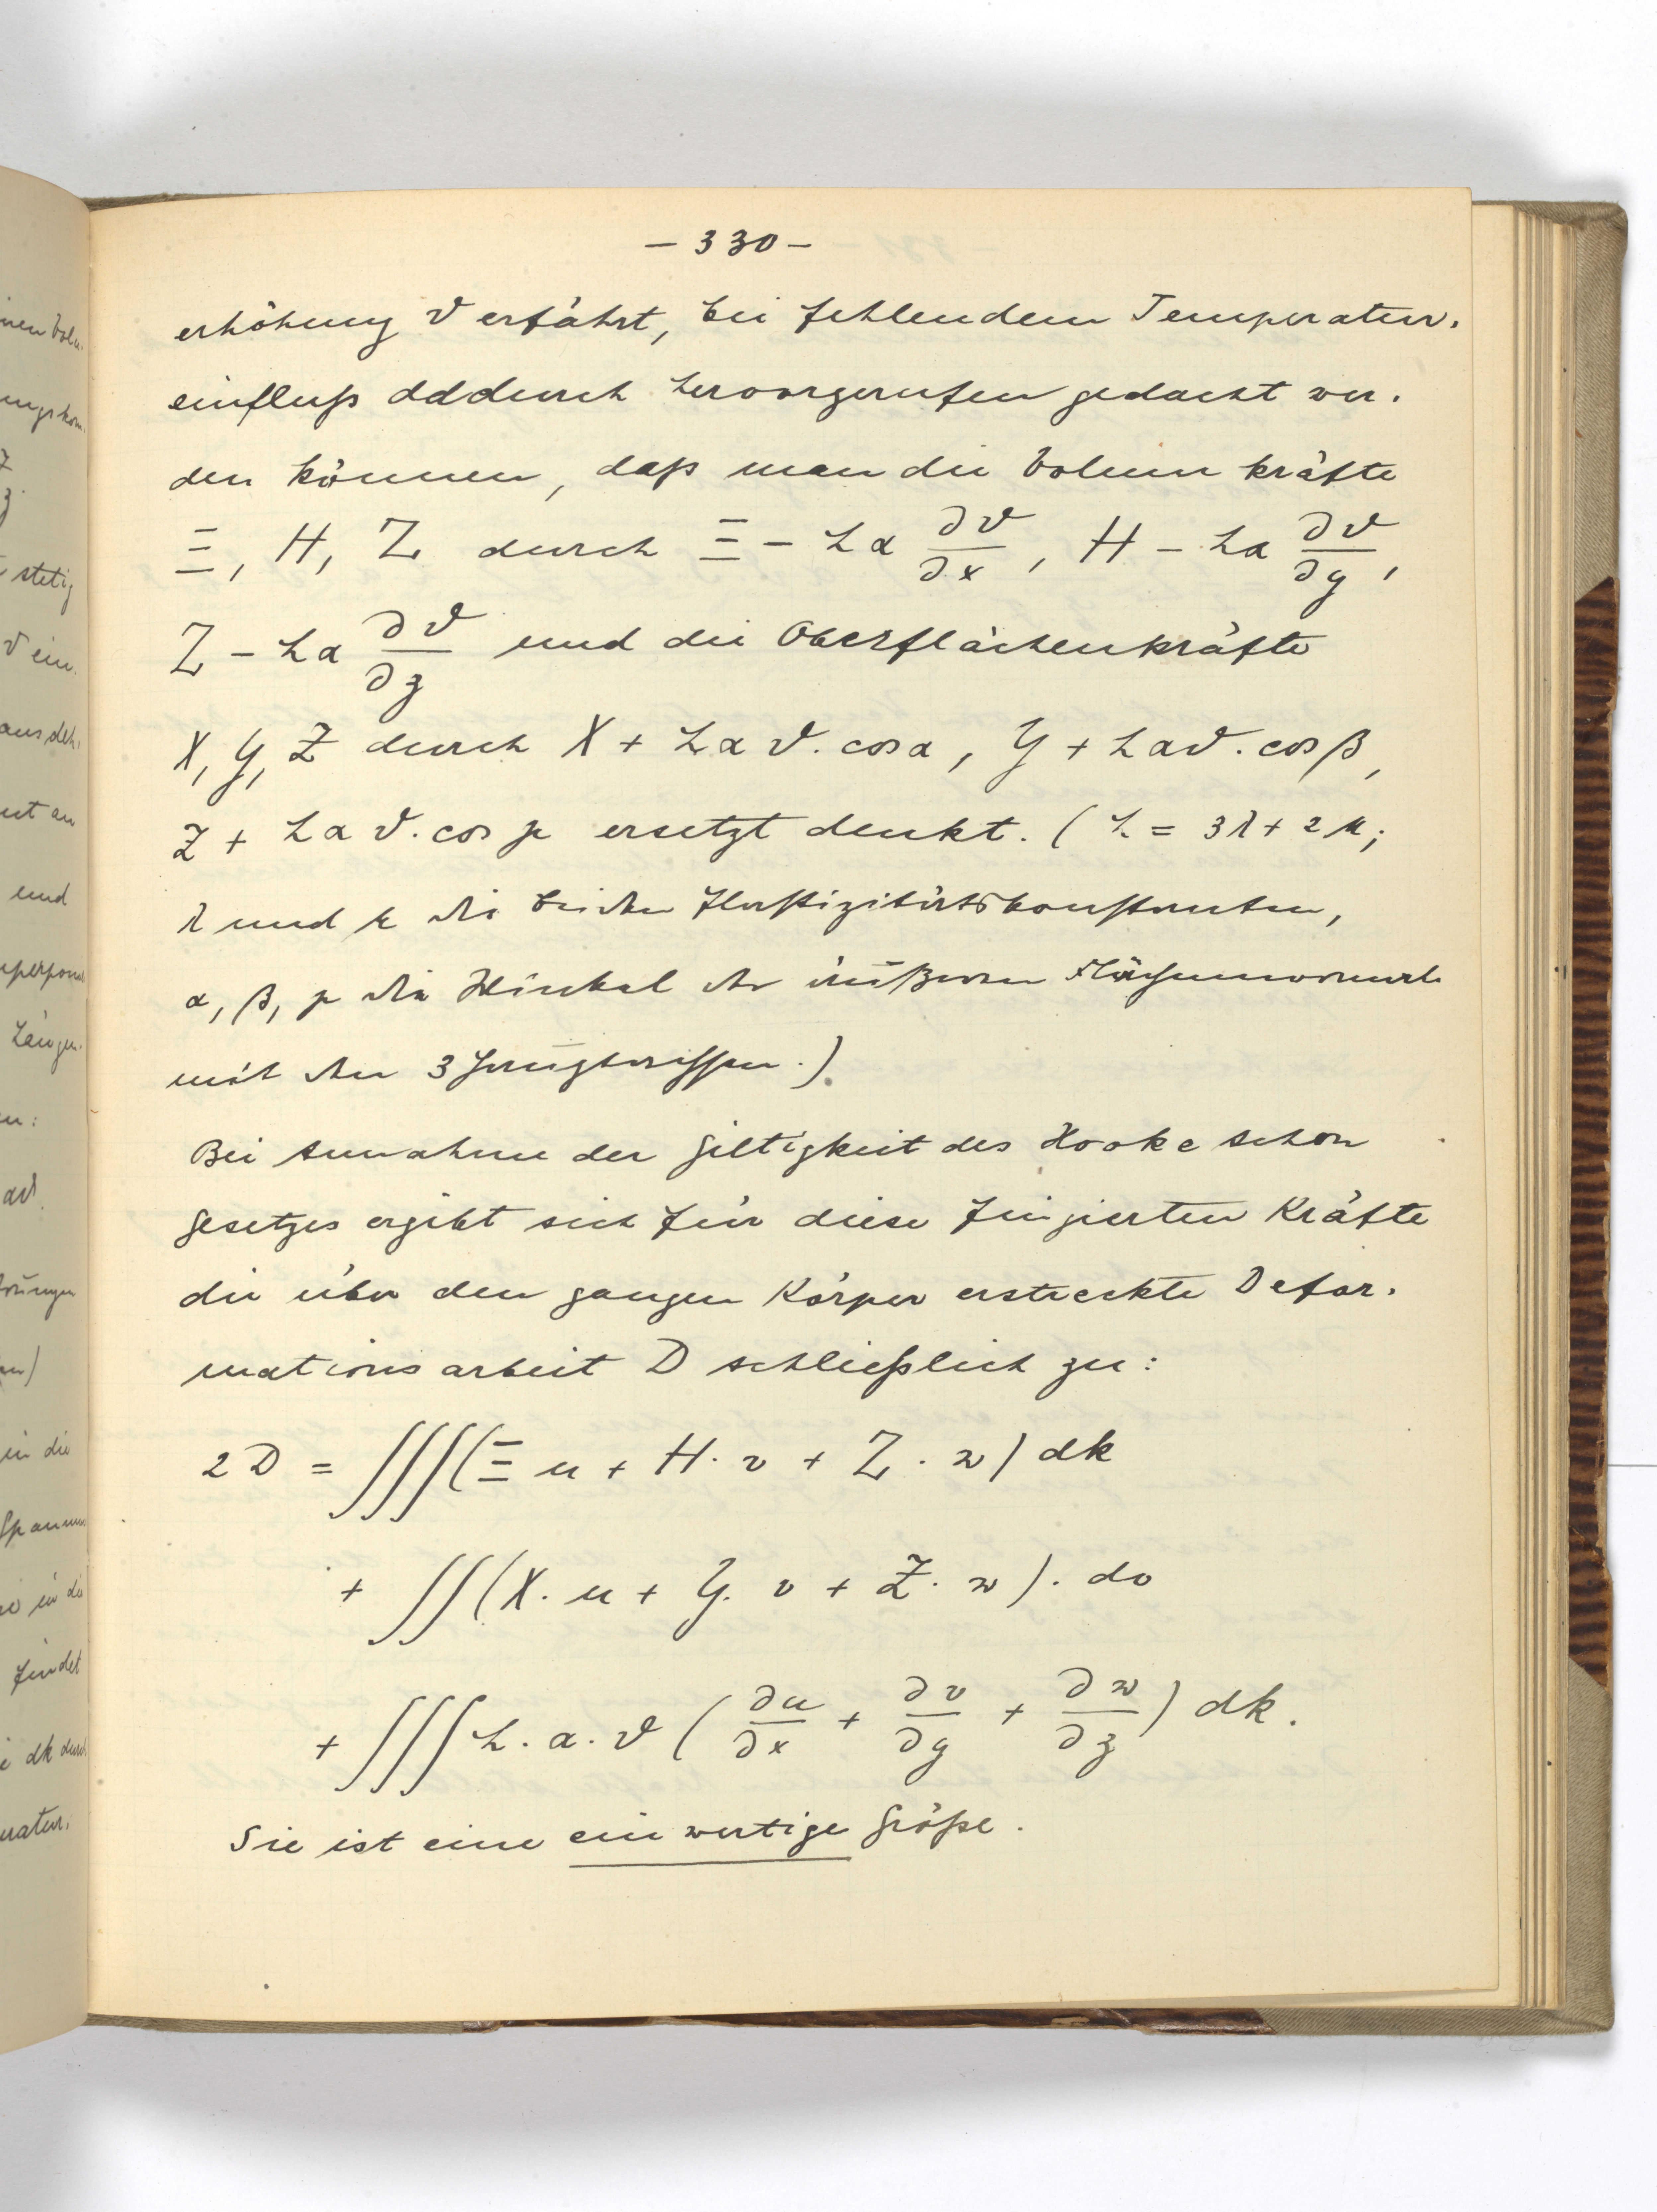 – 330 –
erhöhung ϑ erfährt, bei fehlendem Temperatur-
einfluß dadurch hervorgerufen gedacht wer-
den können, daß man die Volumkräfte
Ξ, H, Z durch Ξ – hα ∂ϑ/∂x, H – hα ∂ϑ/∂y,
Z – hα ∂ϑ/∂z und die Oberflächenkräfte
X, Y, Z durch X + hαϑ. cos α, Y + hαϑ. cos β,
Z + hαϑ. cos γ ersetzt denkt. (h = 3λ + 2μ;
λ und μ die beiden Elastizitätskonstanten,
α, β, γ die Winkel der äußeren Flächennormale
mit den 3 Hauptrissen.)
Bei Annahme der Giltigkeit des Hooke schen
Gesetzes ergibt sich für diese fingierten Kräfte
die über den ganzen Körper erstreckte Defor-
mationsarbeit D schließlich zu:
2D = ∭(Ξ u + H. v + Z. w) dk
+ ∬(X. u + Y. v + Z. w). do
+ ∭ h. α. ϑ (∂u/∂x + ∂v/∂y + ∂w/∂z) dk.
Sie ist eine einwertige Größe.
nen Volu-
ungskom-
Z
stetig
ϑ ein-
ausdeh-
und
Längen-
en:
αϑ
in die
Spannun
in die
findet
dk durch
ratur-